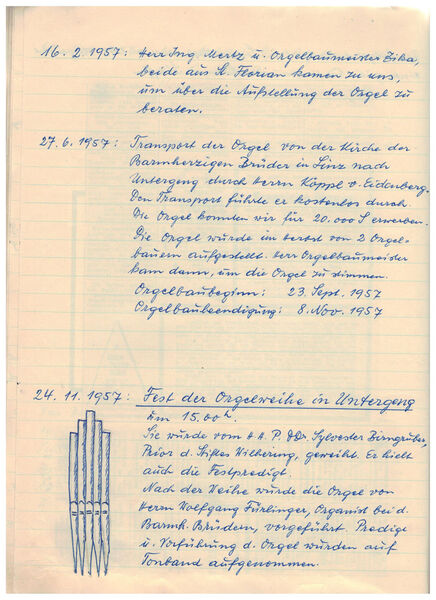 16. 2. 1957: Herr Ing. Mertz u. Orgelbaumeister Zika,
beide aus St. Florian kamen zu uns,
um über die Aufstellung der Orgel zu
beraten.
27. 6. 1957: Transport der Orgel von der Kirche der
Barmherzigen Brüder in Linz nach
Untergeng durch Herrn Köppl v. Eidenberg.
Den Transport führte er kostenlos durch.
Die Orgel konnten wir für 20.000 S erwerben.
Die Orgel wurde im Herbst von 2 Orgel-
bauern aufgestellt. Herr Orgelbaumeister
kam dann, um die Orgel zu stimmen.
Orgelbaubeginn: 23. Sept. 1957
Orgelbaubeendigung: 8. Nov. 1957
24. 11. 1957: Fest der Orgelweihe in Untergeng
Um 15.00h.
Sie wurde vom H. H. P. DDr. Sylvester Birngruber,
Prior d. Stiftes Wilhering, geweiht. Er hielt
auch die Festpredigt.
Nach der Weihe wurde die Orgel von
Herrn Wolfgang Fürlinger, Organist bei d.
Barmh. Brüdern, vorgeführt. Predigt
u. Vorführung d. Orgel wurden auf
Tonband aufgenommen.